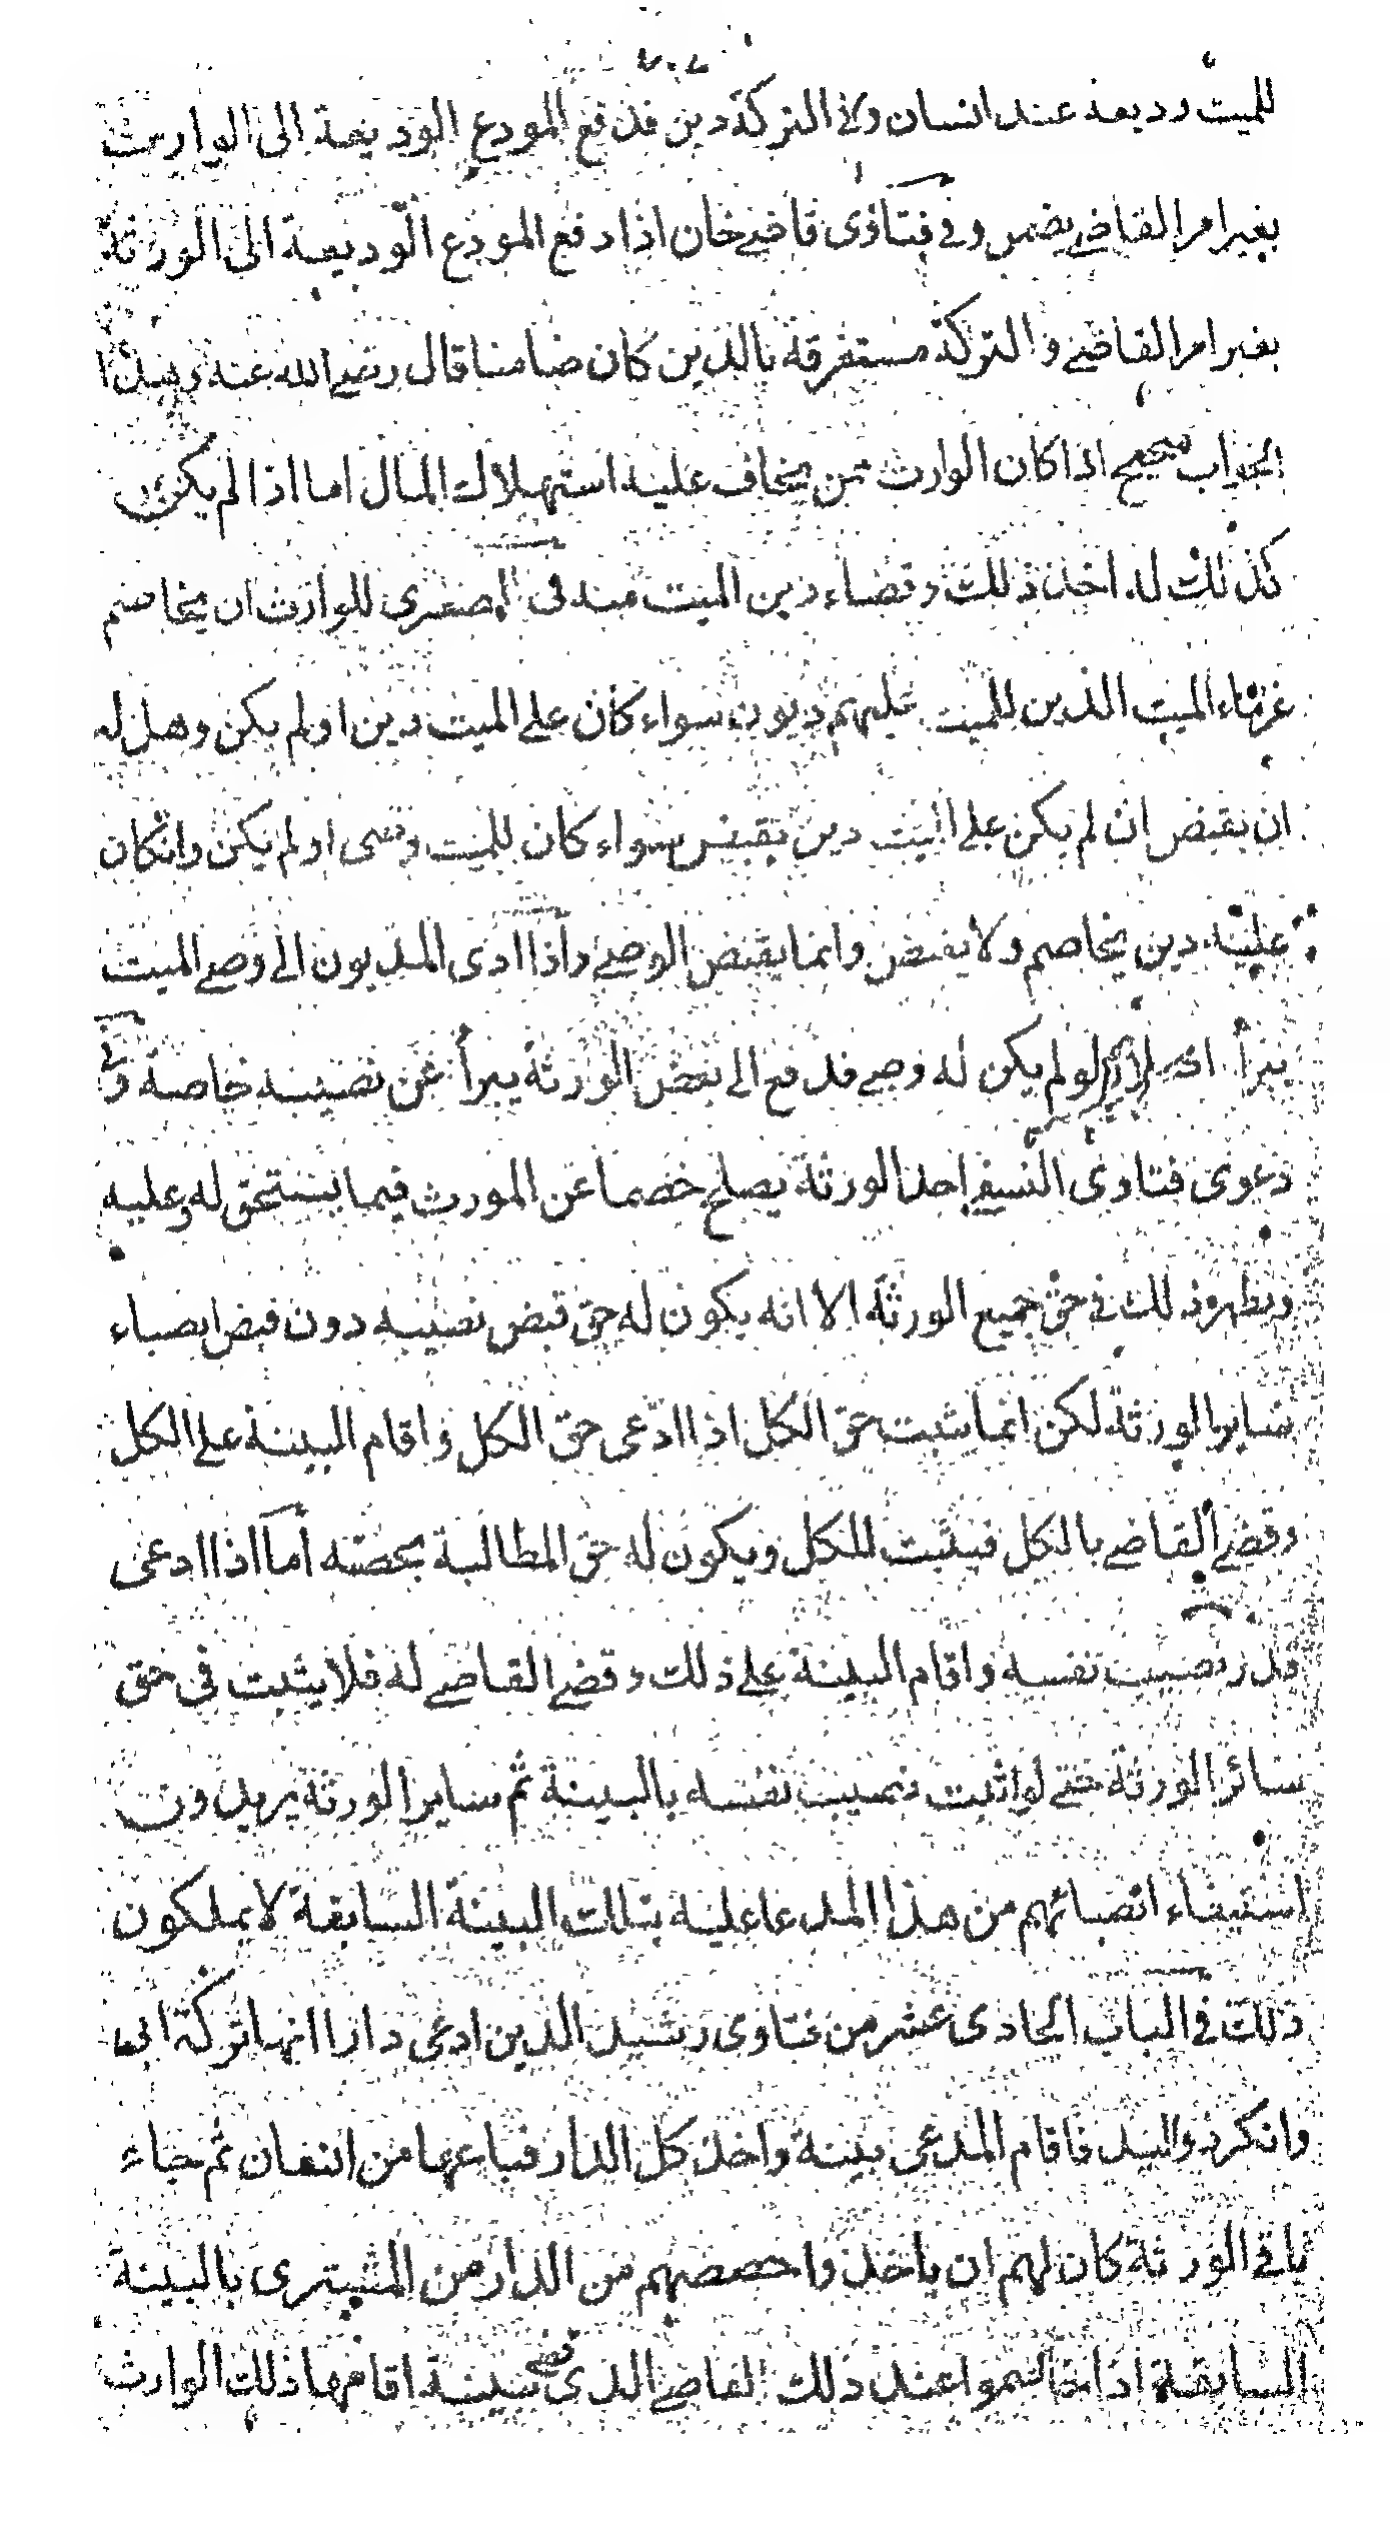 للميت وديعة عند انسان وفي التركة دين فدفع المودع الوديعة الى الوارث
بغير امر القاضي يضمن وفي فتاوى قاضي خان اذا دفع المودع الوديعة الى الورثة
بغير امر القاضي والتركة مستغرقة بالدين كان ضامنا قال رضي الله عنه وهذا
الجواب صحيح اذا كان الوارث ممن يخاف عليه استهلاك المال اما اذا لم يكن
كذلك له اخذ ذلك وقضاء دين الميت منه في الصغرى للوارث ان يخاصم
غرماء الميت الذين للميت عليهم ديون سواء كان على الميت دين او لم يكن وهل له
ان يقبض ان لم يكن على الميت دين يقبض سواء كان للميت وصى او لم يكن وان كان
عليه دين يخاصم ولا يقبض وانما يقبض الوصي واذا ادى المديون الى وصي الميت
يبرأ لو لم يكن له وصي فدفع الى بعض الورثة يبرأ عن نصيبه خاصة وفي
دعوى فتاوى النسفي احد الورثة يصلح خصما عن المورث فيما يستحق له وعليه
ويظهر ذلك في حق جميع الورثة الا انه يكون له حق قبض نصيبه دون قبض ايصباء
ساير الورثة لكن انما يثبت حق الكل اذا ادعى حق الكل واقام البينة على الكل
وقضي القاضي بالكل فيثبت للكل ويكون له حق المطالبة بحصته أما اذا ادعى
قدر نصيب نفسه واقام البينة على ذلك وقضي القاضي له فلا يثبت في حق
سائر الورثة حتى لو اثبت نصيب نفسه بالبينة ثم ساير الورثة يريدون
استيفاء انصبائهم من هذا المدعا عليه بتلك البينة السابقة لا يملكون
ذلك في الباب الحادى عشر من فتاوى رشيد الدين ادعى دارا انها تركة ابى
وانكر ذو اليد فاقام المدعى بينة واخذ كل الدار فباعها من انسان ثم جاء
باقي الورثة كان لهم ان ياخذوا حصصهم من الدار من المشترى بالبينة
السابقة اذا تخاصموا عند ذلك القاضي الذى قضى ببينة اقامها ذلك الوارث